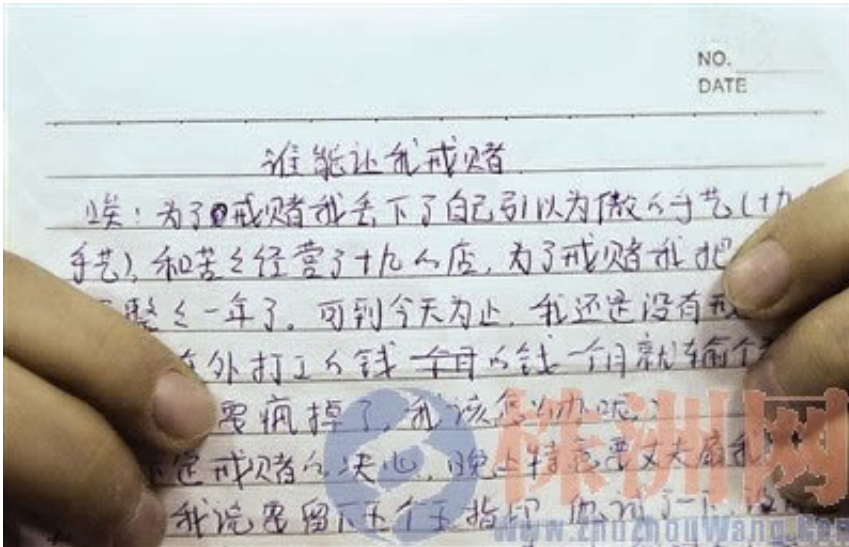 NO.
DATE
谁能让我戒赌
唉!为了戒赌我丢下了自己引以为傲的手艺(十九
手艺),和苦々经营了十九的店,为了戒赌我把
整々一年了。可到今天为止,我还是没有戒
在外打工的钱一个月的钱一个月就输个
要疯掉了,我该怎么办呢?
下定戒赌的决心,晚上特意要丈夫扇我
我说要留下五个手指印,他试了一下,没
株洲网
www.zhuzhouwang.com